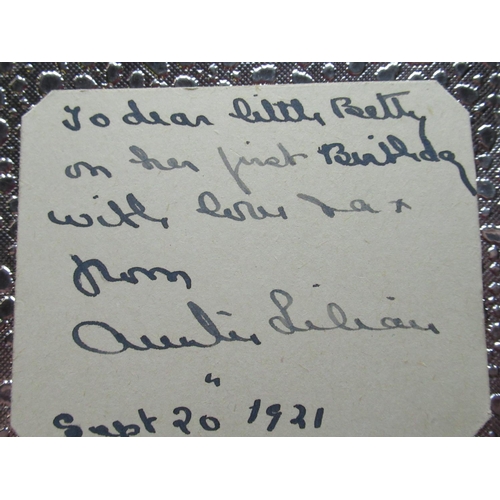 To dear little Betty
on her first Birthday
with love & a x
from
Auntie Lilian
"
Sept 20 1921